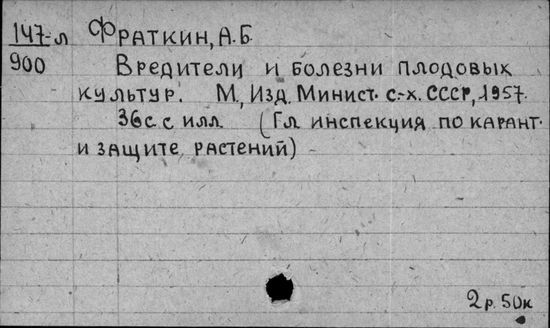 147-л Фраткин, А.Б.
900 Вредители и болезни плодовых
культур. М, Изд. Минист. с.-х. СССР, 1957.
36с с илл. (Гл инспекция по карант.
и защите растений)
2р. 50к